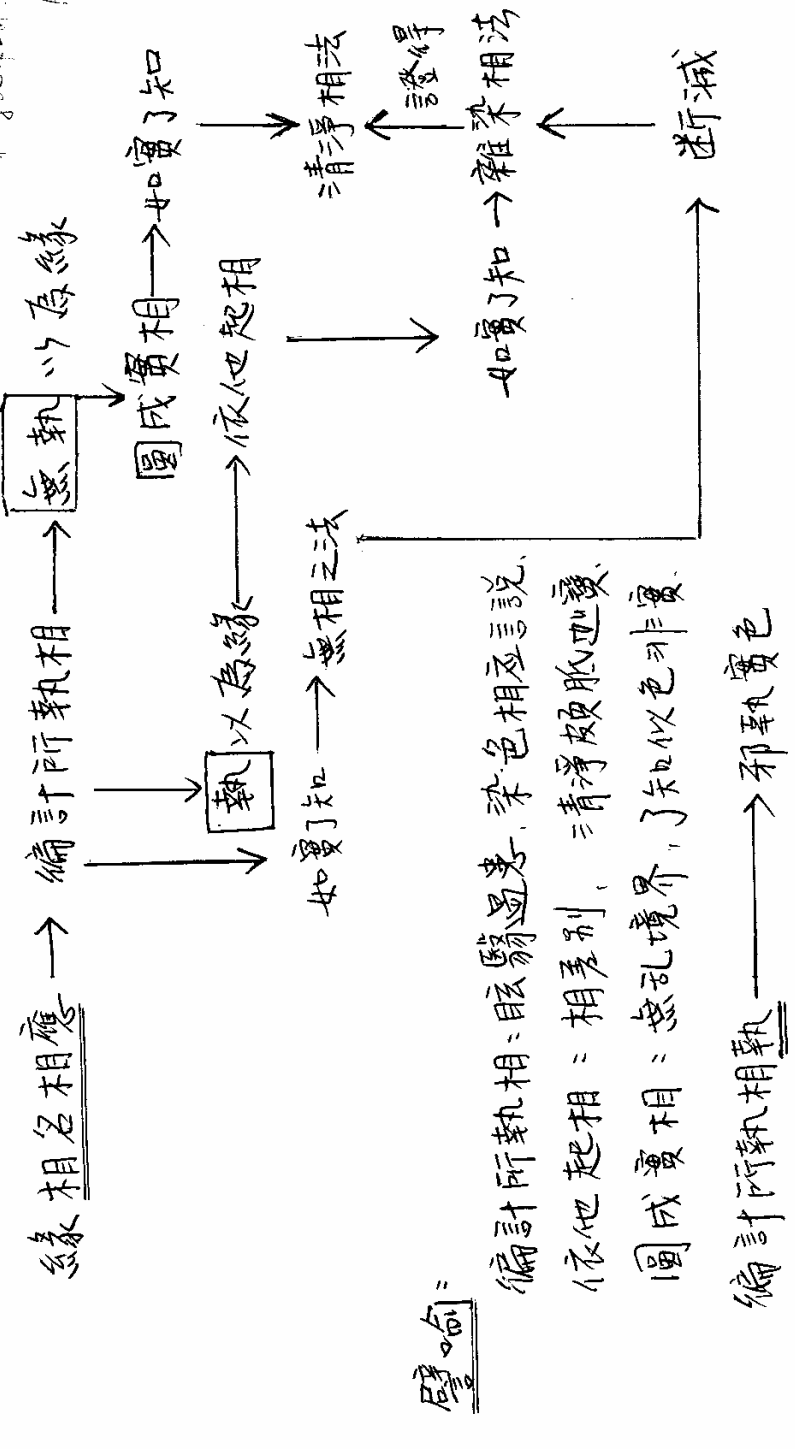 緣相名相應 → 編計所執相 → 無執 以為緣
圓成實相 → 如實了知
執以為緣 → 依他起相
如實了知 → 無相之法
清淨相法
證得
如實了知 → 雜染相法
断滅
譬喻=
編計所執相=眩翳過患、染色相應言説、
依他起相=相差別、清淨頗胝迦寶、
圓成實相=無乱境界、了知似色非實
編計所執相執 → 邪執實色